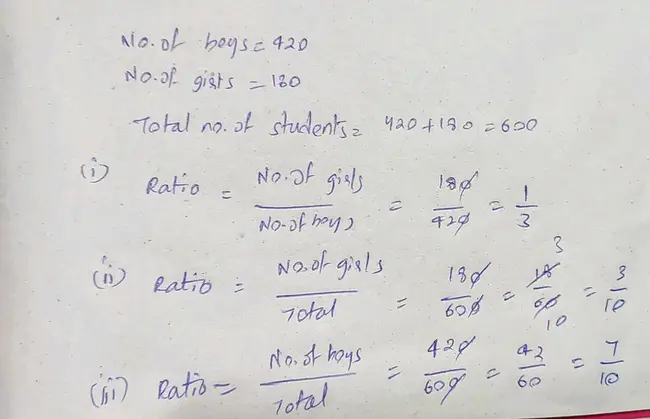 No. of boys = 420
No. of girls = 180
Total no. of students = 420 + 180 = 600
(i) Ratio = No. of girls / No. of boys = 180/420 = 1/3
(ii) Ratio = No. of girls / Total = 180/600 = 18/60 = 3/10
(iii) Ratio = No. of boys / Total = 420/600 = 42/60 = 7/10